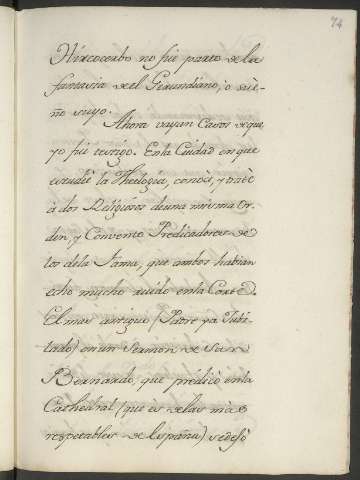 74
Hircocerbo no fue parto de la
fantasia de el Gerundiano, o sue-
ño suyo.
Ahora vayan Casos de que
yo fui testigo. En la Ciudad en que
estudiè la Theologia, conocì, y tratè
à dos Religiosos de una misma Or-
den, y Convento Predicadores de
los de la fama, que ambos habian
echo mucho ruido en la Corte.
El mas antiguo (Padre ya Jubi-
lado) en un Sermon de San
Bernardo, que predicò en la
Cathedral (que es de las mas
respetables de España) se dejò